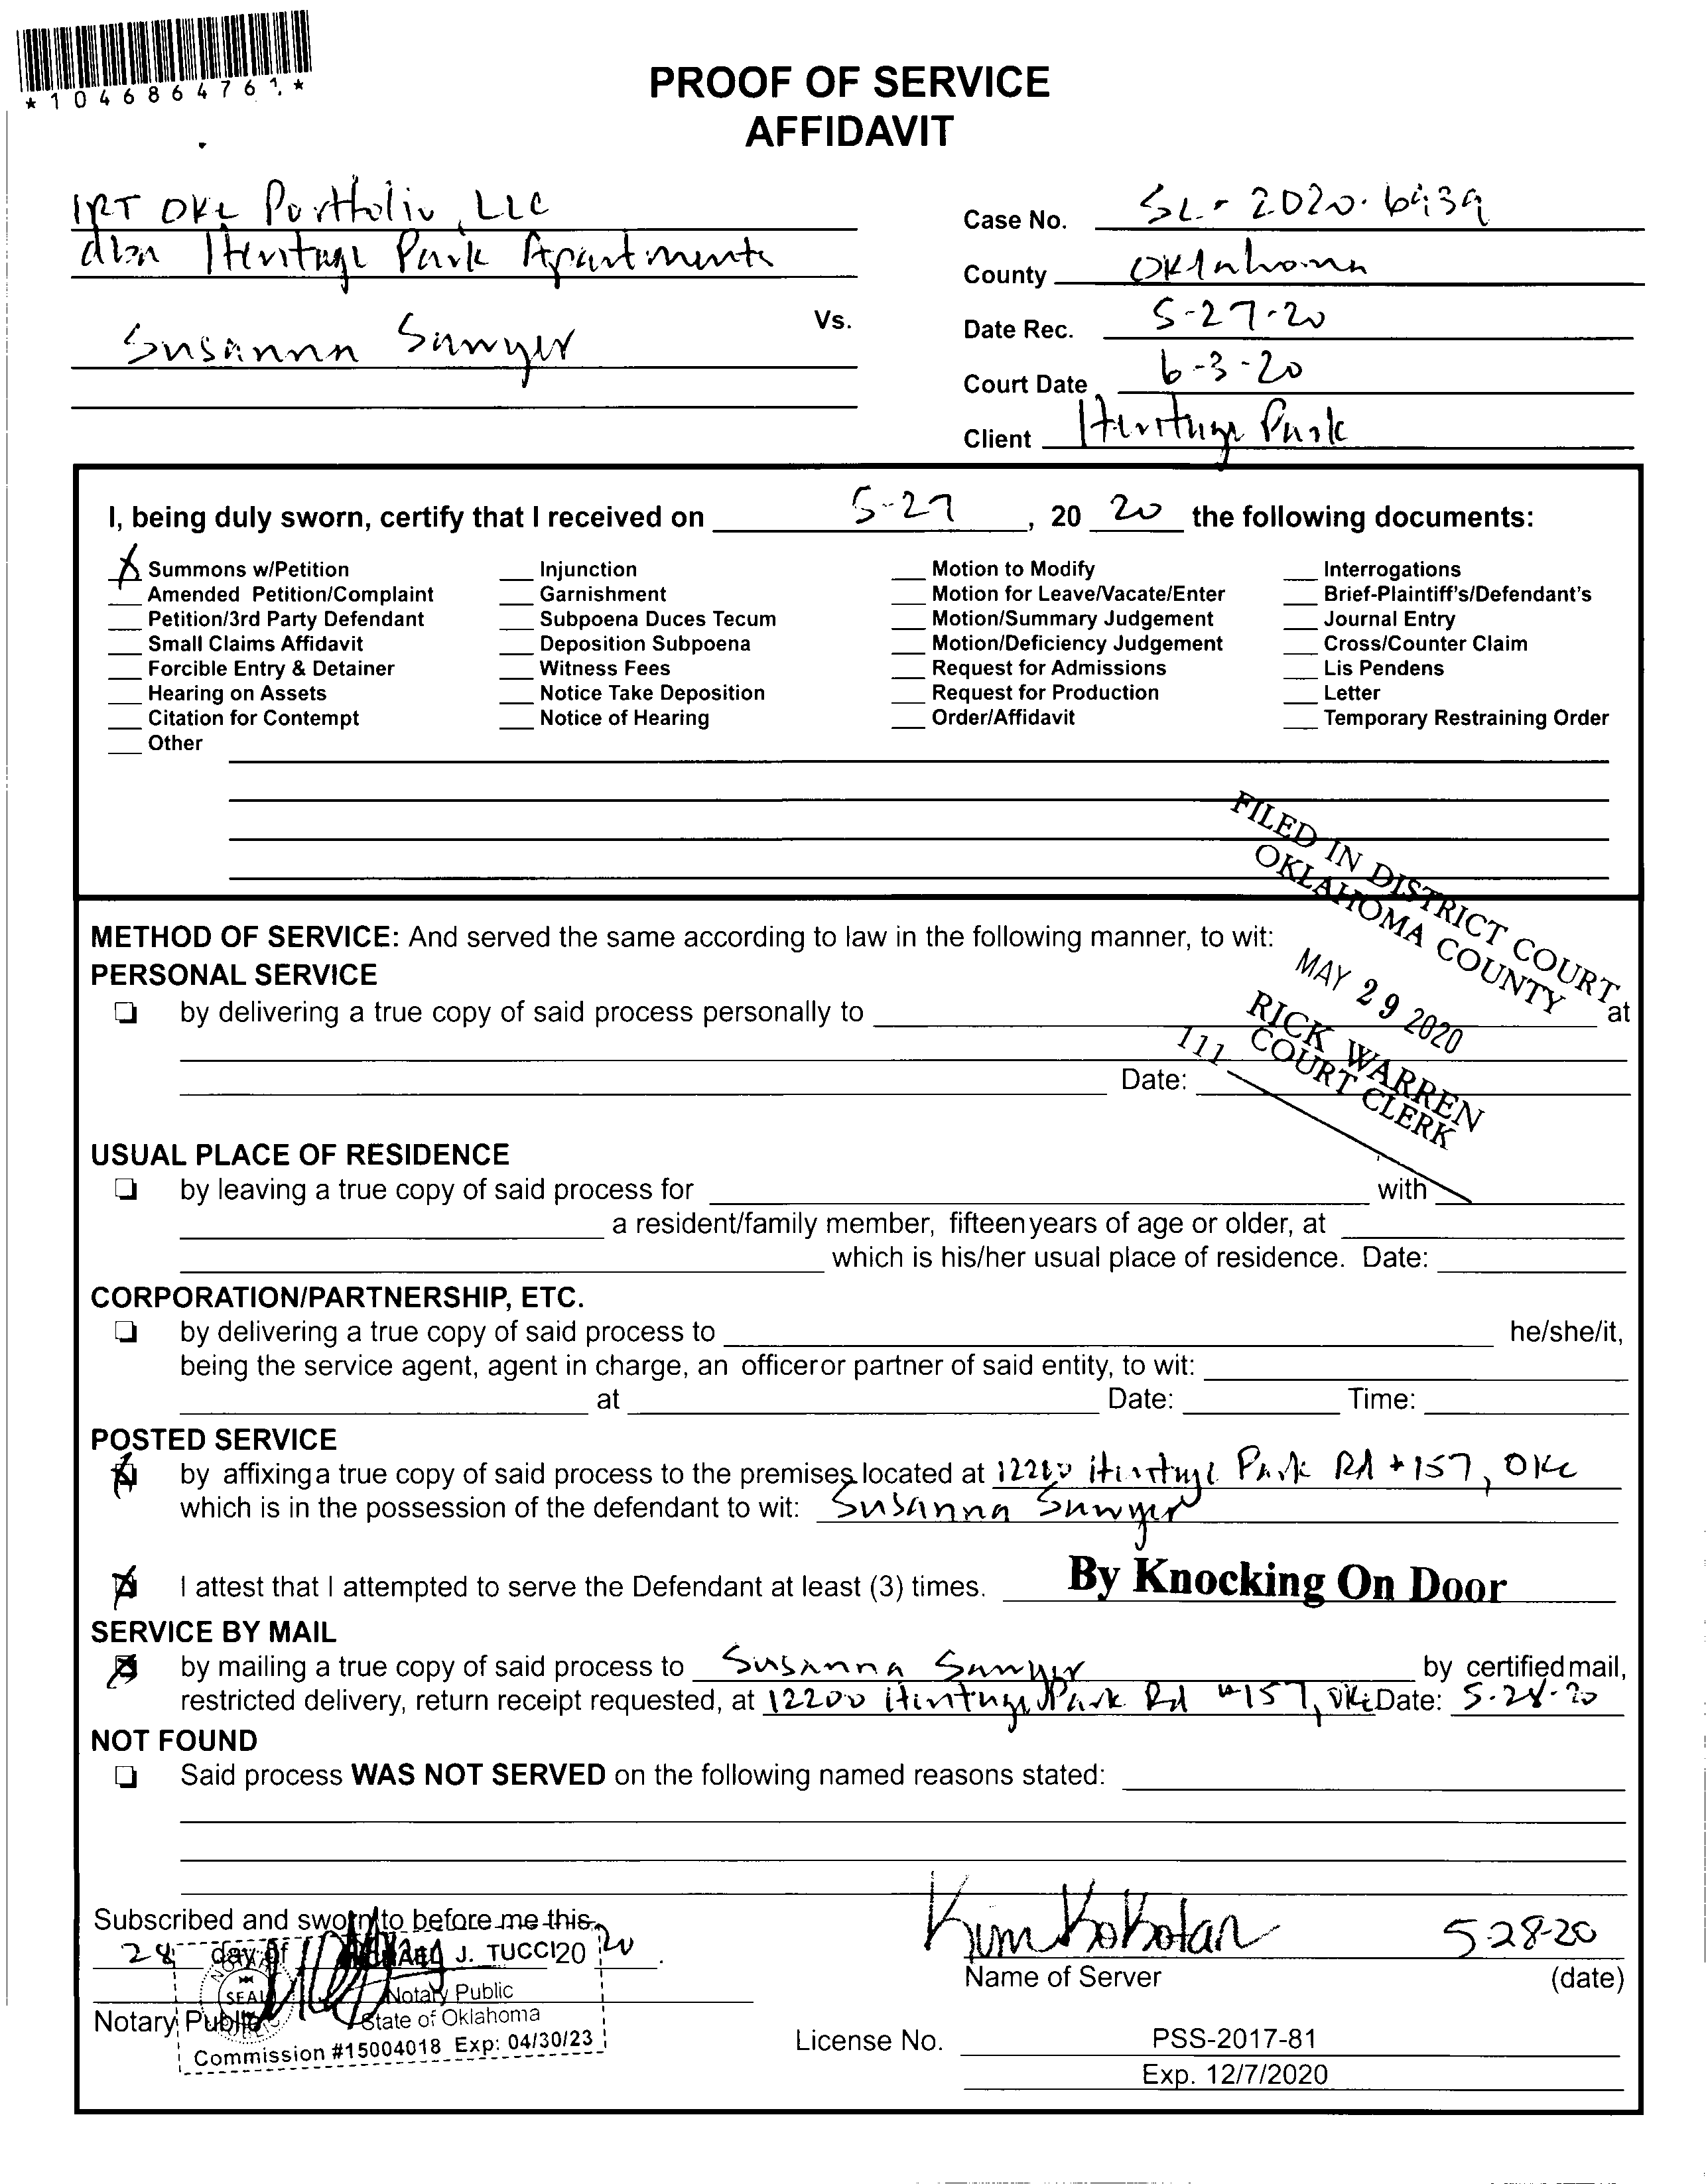 *1046864761*
PROOF OF SERVICE
AFFIDAVIT
IRT OKC Portfolio, LLC
dba Heritage Park Apartments
Vs.
Susanna Sawyer
Case No. SC-2020-6939
County Oklahoma
Date Rec. 5-27-20
Court Date 6-3-20
Client Heritage Park
I, being duly sworn, certify that I received on 5-27, 20 20 the following documents:
X Summons w/Petition
Amended Petition/Complaint
Petition/3rd Party Defendant
Small Claims Affidavit
Forcible Entry & Detainer
Hearing on Assets
Citation for Contempt
Other
Injunction
Garnishment
Subpoena Duces Tecum
Deposition Subpoena
Witness Fees
Notice Take Deposition
Notice of Hearing
Motion to Modify
Motion for Leave/Vacate/Enter
Motion/Summary Judgement
Motion/Deficiency Judgement
Request for Admissions
Request for Production
Order/Affidavit
Interrogations
Brief-Plaintiff's/Defendant's
Journal Entry
Cross/Counter Claim
Lis Pendens
Letter
Temporary Restraining Order
FILED IN DISTRICT COURT
OKLAHOMA COUNTY
MAY 29 2020
RICK WARREN
COURT CLERK
111
METHOD OF SERVICE: And served the same according to law in the following manner, to wit:
PERSONAL SERVICE
by delivering a true copy of said process personally to at
Date:
USUAL PLACE OF RESIDENCE
by leaving a true copy of said process for with
a resident/family member, fifteen years of age or older, at
which is his/her usual place of residence. Date:
CORPORATION/PARTNERSHIP, ETC.
by delivering a true copy of said process to he/she/it,
being the service agent, agent in charge, an officer or partner of said entity, to wit:
at Date: Time:
POSTED SERVICE
X by affixing a true copy of said process to the premises located at 12200 Heritage Park Rd #157, OKC
which is in the possession of the defendant to wit: Susanna Sawyer
X I attest that I attempted to serve the Defendant at least (3) times. By Knocking On Door
SERVICE BY MAIL
X by mailing a true copy of said process to Susanna Sawyer by certified mail,
restricted delivery, return receipt requested, at 12200 Heritage Park Rd #157, OKC Date: 5-28-20
NOT FOUND
Said process WAS NOT SERVED on the following named reasons stated:
Subscribed and sworn to before me this
28 day of 20 20
J. TUCCI
Notary Public
SEAL
State of Oklahoma
Commission #15004018 Exp: 04/30/23
Notary Public
Kim Kobolan 5-28-20
Name of Server (date)
License No. PSS-2017-81
Exp. 12/7/2020